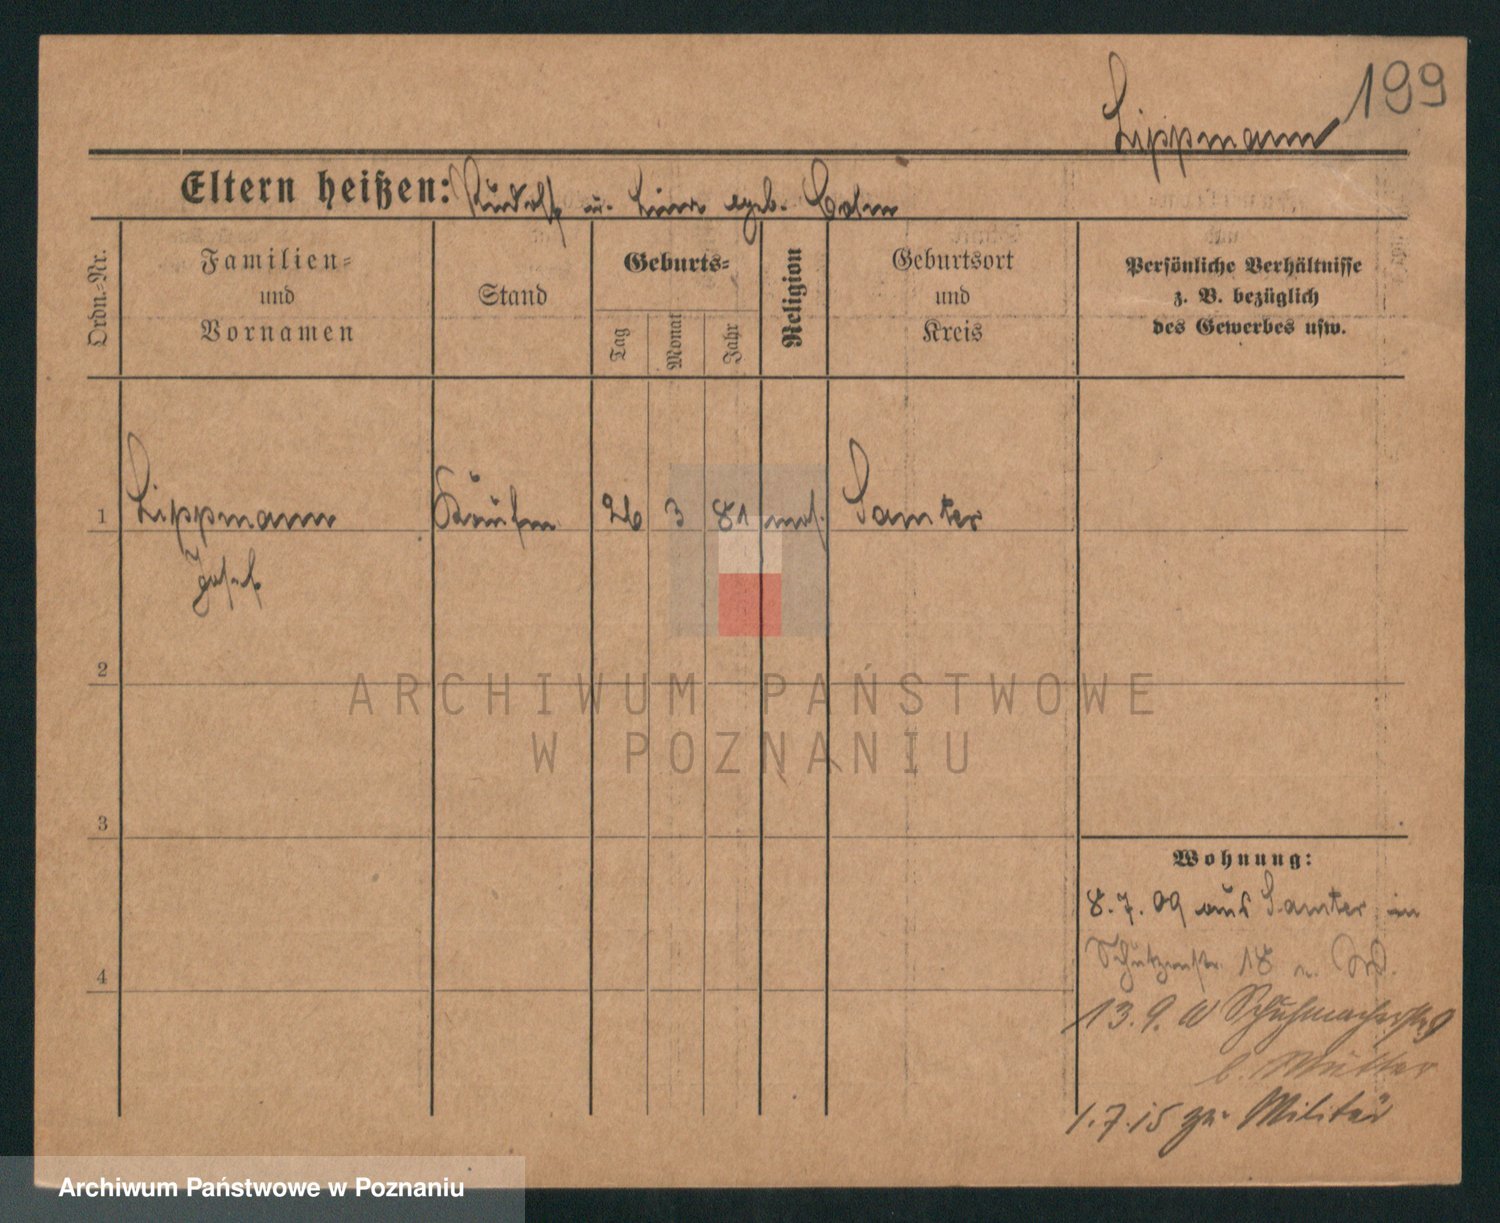 199
Lippmann
Eltern heißen: Rudolf u. geb. Cohn
Ordn.-Nr.
Familien-
und
Vornamen
Stand
Geburts-
Tag
Monat
Jahr
Religion
Geburtsort
und
Kreis
Persönliche Verhältnisse
z. B. bezüglich
des Gewerbes usw.
1
Lippmann
Kaufm
26
3
81
mos.
Samter
Josef
2
3
4
Wohnung:
8.7.09 aus Samter in
Schützenstr. 18
13.9. Schuhmacherstr 9
b. Mutter
1.7.15 zu Militär
ARCHIWUM PAŃSTWOWE
W POZNANIU
Archiwum Państwowe w Poznaniu